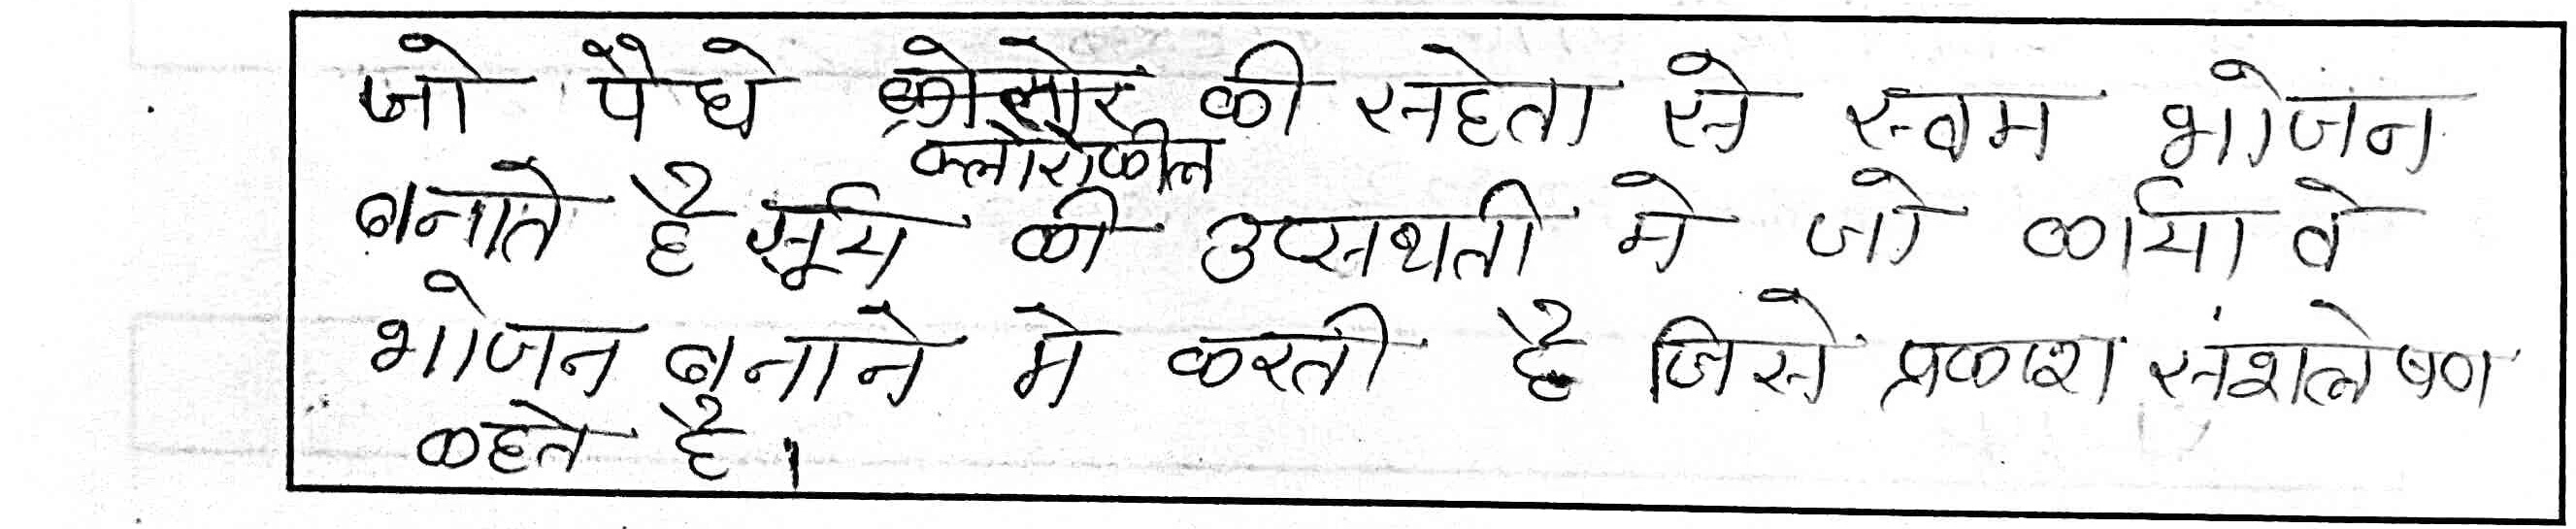 जो पैधे क्लोरोफील की सहेता से स्वम भोजन
बनाते है सूर्य की उपसथती मे जो कार्या वे
भोजन बनाने मे करती है जिसे प्रकाश संशलेषण
कहते है।